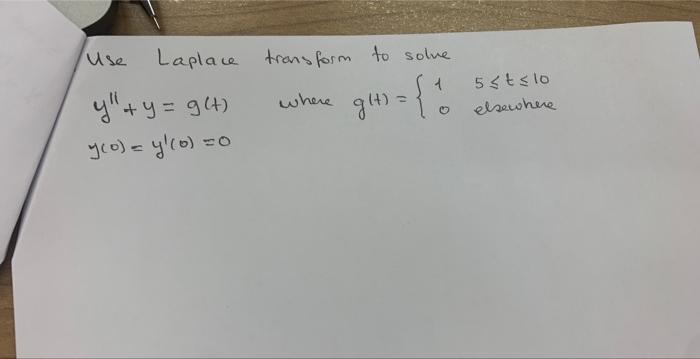 Use Laplace transform to solve
y'' + y = g(t) where g(t) = { 1 5 ≤ t ≤ 10
0 elsewhere
y(0) = y'(0) = 0